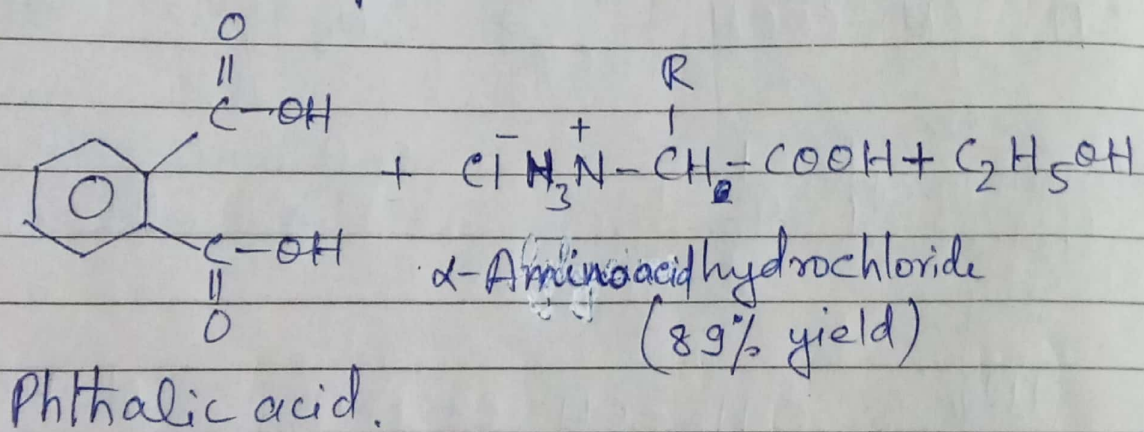 O
||
C-OH
R
+ Cl⁻ H₃N⁺-CH-COOH + C₂H₅OH
C-OH
||
O
α-Aminoacid hydrochloride
(89% yield)
Phthalic acid.